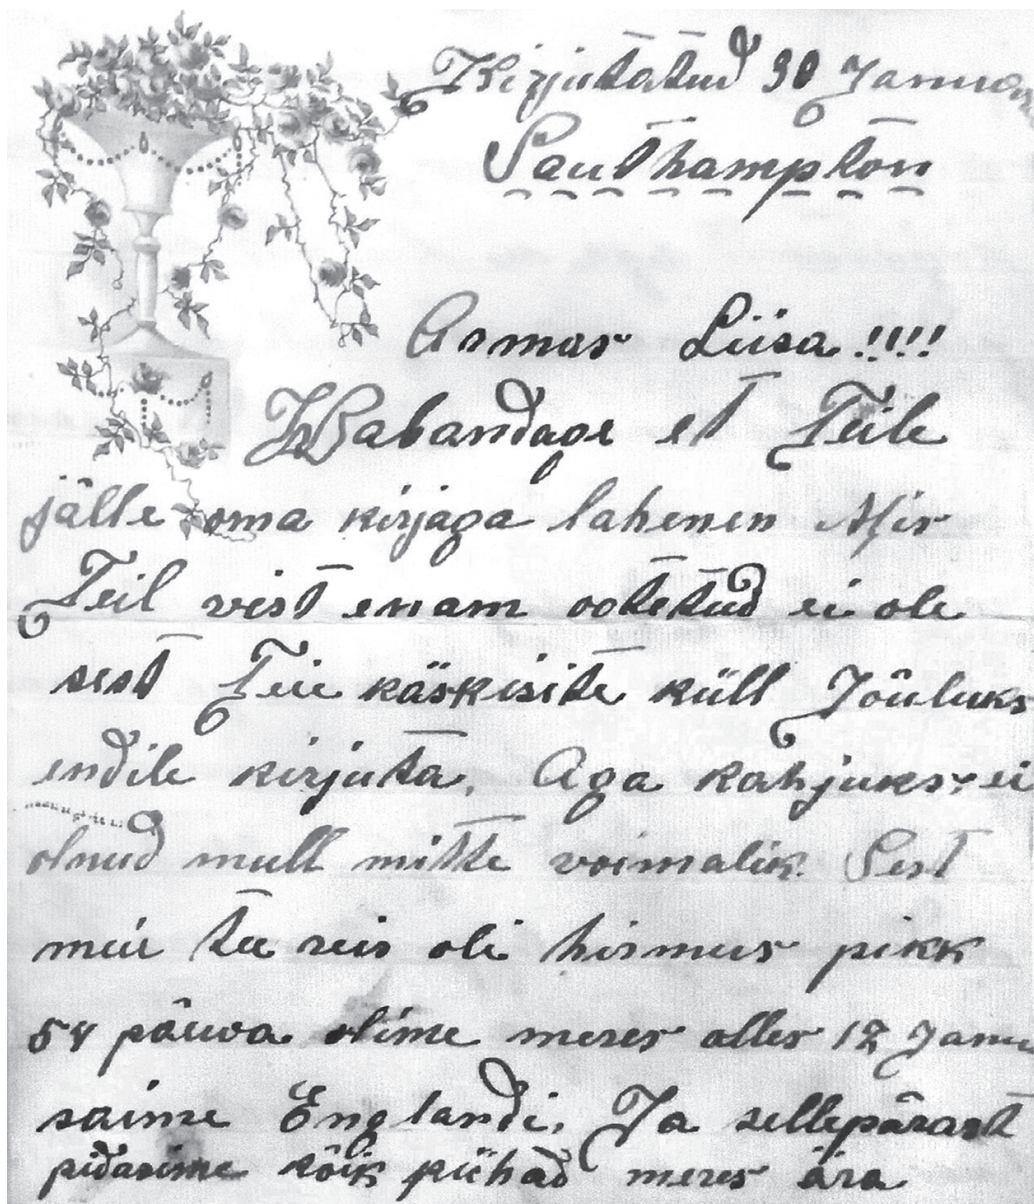 Kirjutatud 30 Januar
Sauthampton
Armas Liisa !!!!
Wabandage et Teile
jälle oma kirjaga lahenen Mis
Teil vist enam ootetud ei ole
sest Teie käskisite küll Jõuluks
endile kirjuta. Aga kahjuks ei
olnud mull mitte voimalik. Sest
meie tee reis oli hirmus pikk
54 päiwa olime meres alles 12 Janu
saime Englandi. Ja sellepärast
pidasime kõik pühad meres ära